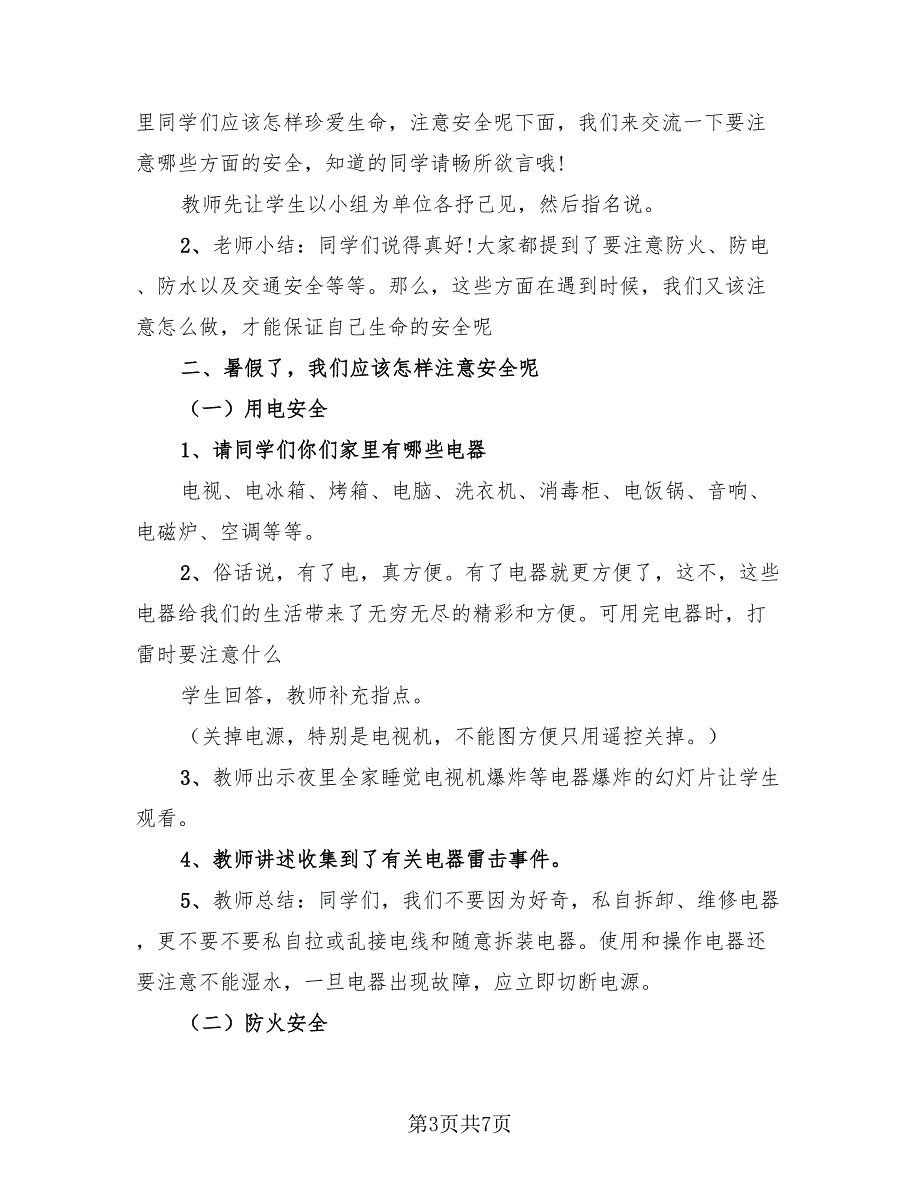 里同学们应该怎样珍爱生命，注意安全呢下面，我们来交流一下要注
意哪些方面的安全，知道的同学请畅所欲言哦!
教师先让学生以小组为单位各抒己见，然后指名说。
2、老师小结：同学们说得真好!大家都提到了要注意防火、防电
、防水以及交通安全等等。那么，这些方面在遇到时候，我们又该注
意怎么做，才能保证自己生命的安全呢
二、暑假了，我们应该怎样注意安全呢
（一）用电安全
1、请同学们你们家里有哪些电器
电视、电冰箱、烤箱、电脑、洗衣机、消毒柜、电饭锅、音响、
电磁炉、空调等等。
2、俗话说，有了电，真方便。有了电器就更方便了，这不，这些
电器给我们的生活带来了无穷无尽的精彩和方便。可用完电器时，打
雷时要注意什么
学生回答，教师补充指点。
（关掉电源，特别是电视机，不能图方便只用遥控关掉。）
3、教师出示夜里全家睡觉电视机爆炸等电器爆炸的幻灯片让学生
观看。
4、教师讲述收集到了有关电器雷击事件。
5、教师总结：同学们，我们不要因为好奇，私自拆卸、维修电器
，更不要不要私自拉或乱接电线和随意拆装电器。使用和操作电器还
要注意不能湿水，一旦电器出现故障，应立即切断电源。
（二）防火安全
第3页共7页